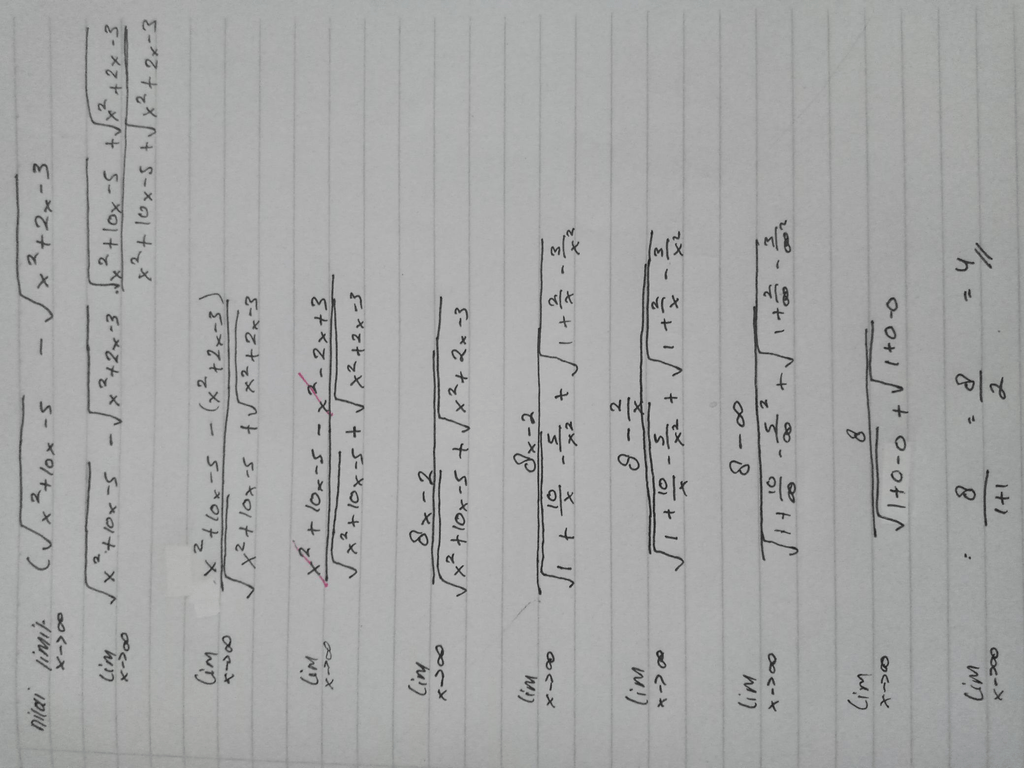 nilai limit x→∞ (√x²+10x-5 - √x²+2x-3
lim x→∞ √x²+10x-5 - √x²+2x-3 . √x²+10x-5 + √x²+2x-3 / x²+10x-5 + √x²+2x-3
lim x→∞ x²+10x-5 - (x²+2x-3) / √x²+10x-5 + √x²+2x-3
lim x→∞ x²+10x-5 - x²-2x+3 / √x²+10x-5 + √x²+2x-3
lim x→∞ 8x-2 / √x²+10x-5 + √x²+2x-3
lim x→∞ 8x-2 / √1+10/x-5/x² + √1+2/x-3/x²
lim x→∞ 8-2/x / √1+10/x-5/x² + √1+2/x-3/x²
lim x→∞ 8-∞ / √1+10/∞-5/∞² + √1+2/∞-3/∞²
lim x→∞ 8 / √1+0-0 + √1+0-0
lim x→∞ : 8/1+1 = 8/2 = 4 //